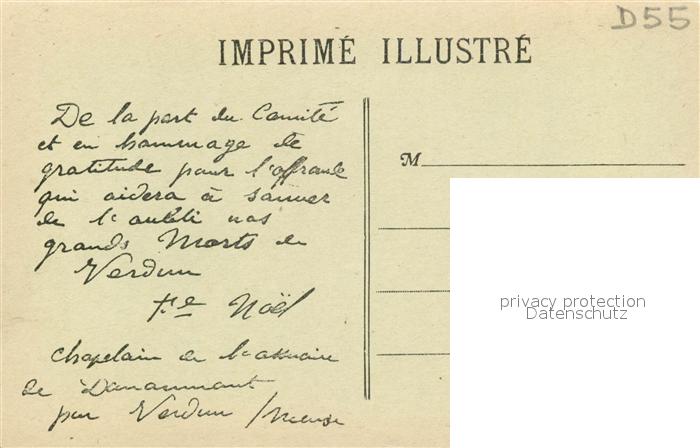 D55
IMPRIMÉ ILLUSTRÉ
De la part du Comité
et en hommage de
gratitude pour l'offrande
qui aidera à sauver
de l'oubli nos
grands Morts de
Verdun
Noël
chapelain de l'ossuaire
de Douaumont
par Verdun / Meuse
M
privacy protection
Datenschutz